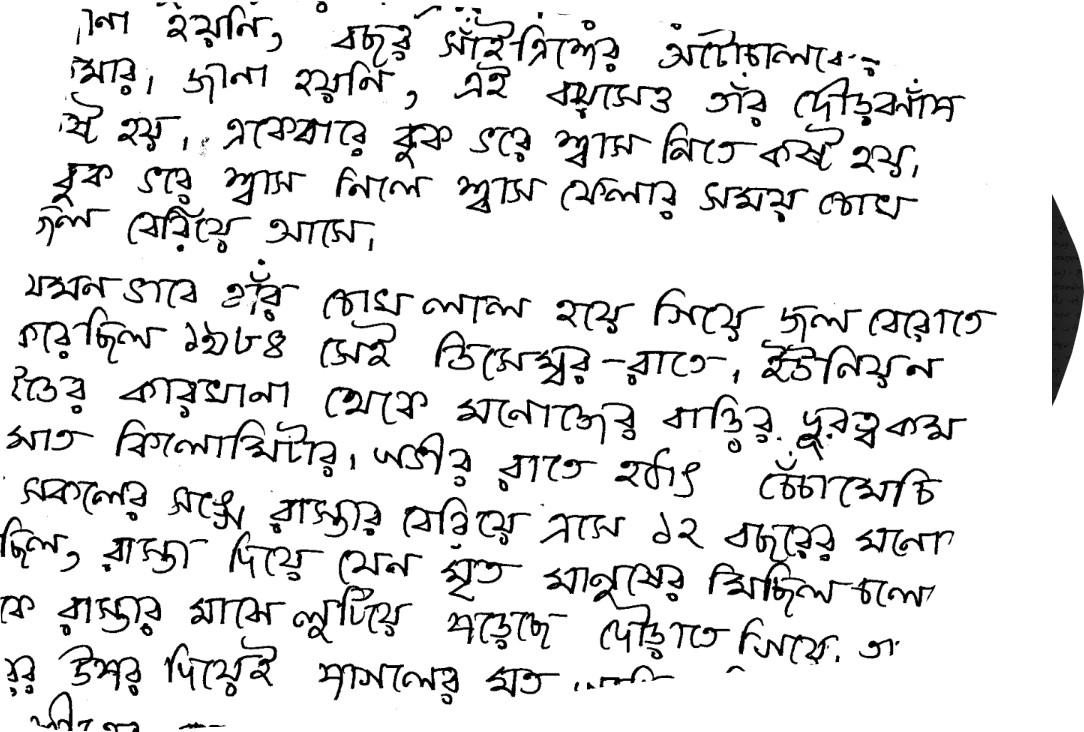 হয়নি, বছর সাঁইত্রিশের অটোচালকের
জানা হয়নি, এই বয়সেও তাঁর দৌড়ঝাঁপ
হয়। একেবারে বুক ভরে শ্বাস নিতে কষ্ট হয়।
বুক ভরে শ্বাস নিলে শ্বাস ফেলার সময় চোখ
জল বেরিয়ে আসে।
যেমন ভাবে তাঁর চোখ লাল হয়ে গিয়ে জল বেরোতে
করেছিল ১৯৮৪ সেই ডিসেম্বর-রাতে। ইউনিয়ন
কারখানা থেকে মনোজের বাড়ির দূরত্ব কম
সাত কিলোমিটার। গভীর রাতে হঠাৎ চেঁচামেচি
সকলের সঙ্গে রাস্তার বেরিয়ে এসে ১২ বছরের মনো
ছিল, রাস্তা দিয়ে যেন মৃত মানুষের মিছিল চলে
কে রাস্তার মাঝে লুটিয়ে পড়েছে দৌড়াতে গিয়ে। তা
উপর দিয়েই পাগলের মত